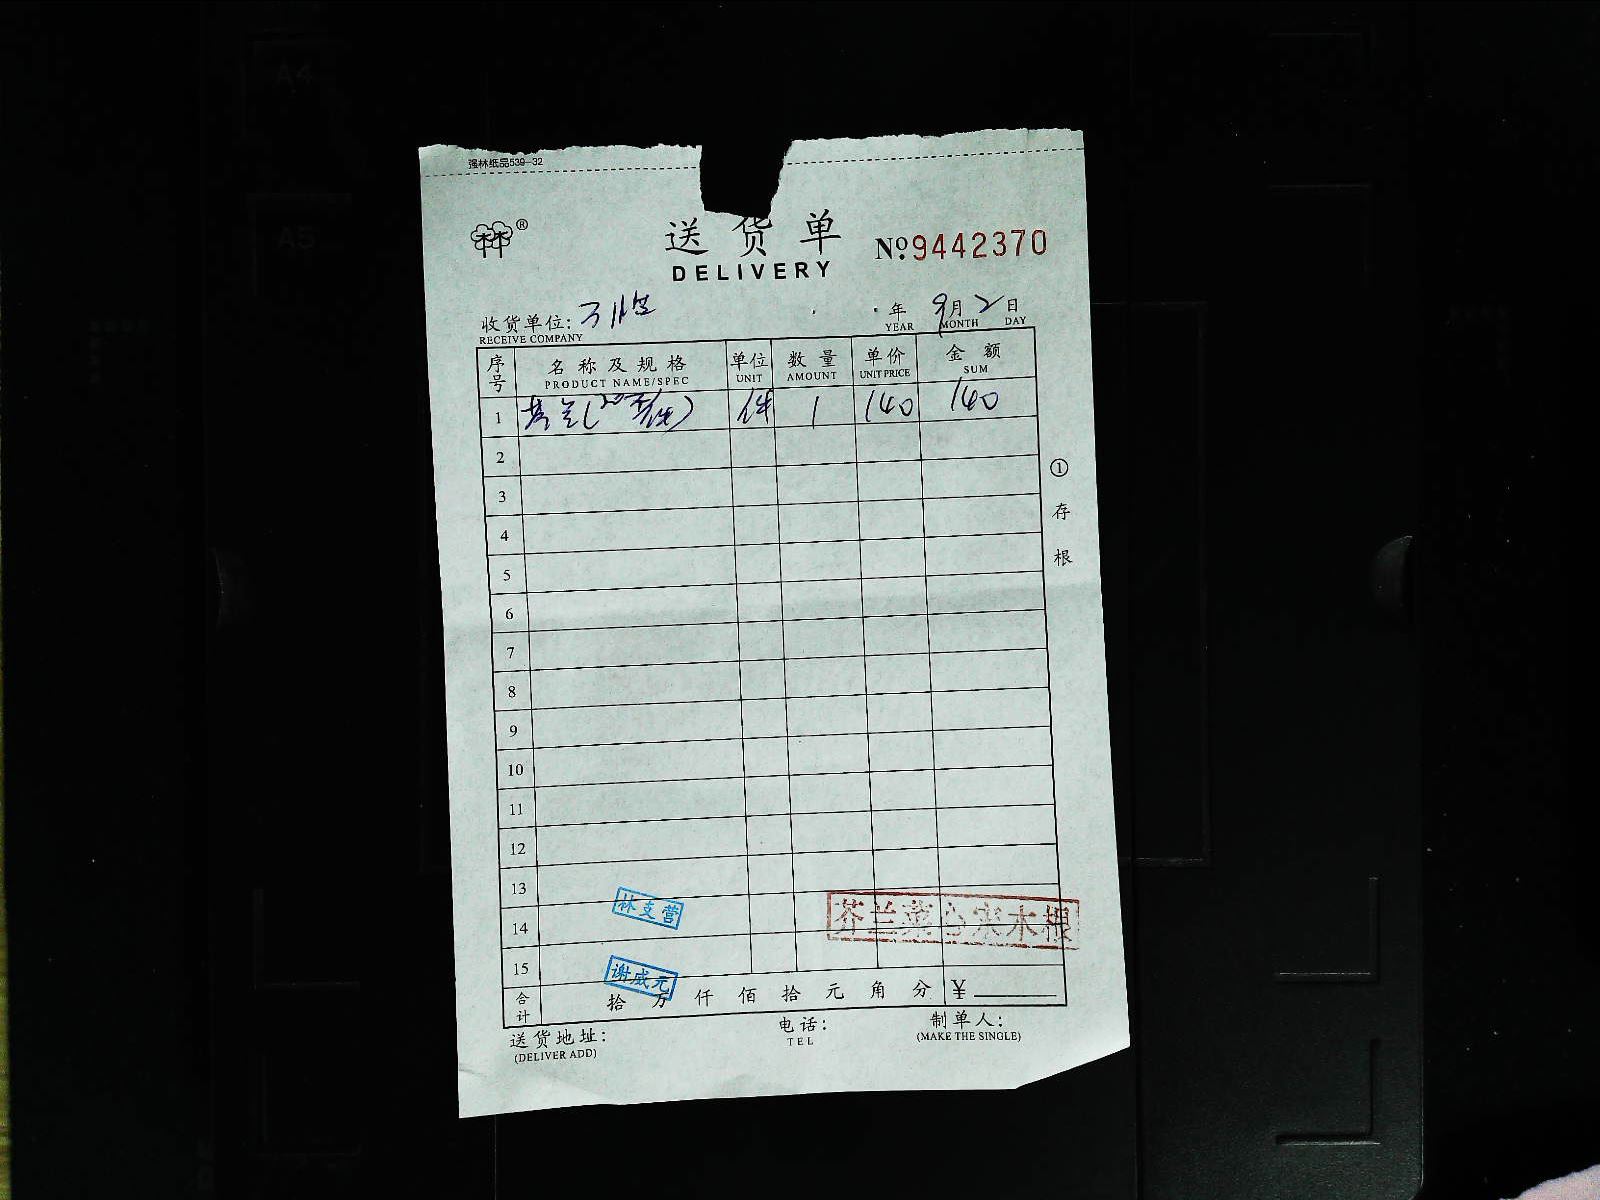 强林纸品539-32
林林®
送货单
DELIVERY
№9442370
收货单位:
RECEIVE COMPANY
年 9月2日
YEAR MONTH DAY
序号 名称及规格 单位 数量 单价 金额
PRODUCT NAME/SPEC UNIT AMOUNT UNIT PRICE SUM
1 件 1 140 140
2
3
4
5
6
7
8
9
10
11
12
13
14
15
①存根
林支营
芬兰菜心实木根
谢成元
合计 拾万仟佰拾元角分 ¥
送货地址: 电话: 制单人:
(DELIVER ADD) TEL (MAKE THE SINGLE)
A4
A5